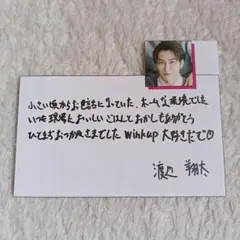 小さい頃からお世話になっていた、ホームな現場でした
いつも現場においしいごはんしておかしもありがとう
ひとまずおつかれさまでした Wink up 大好きだぞ♡
渡辺 翔太